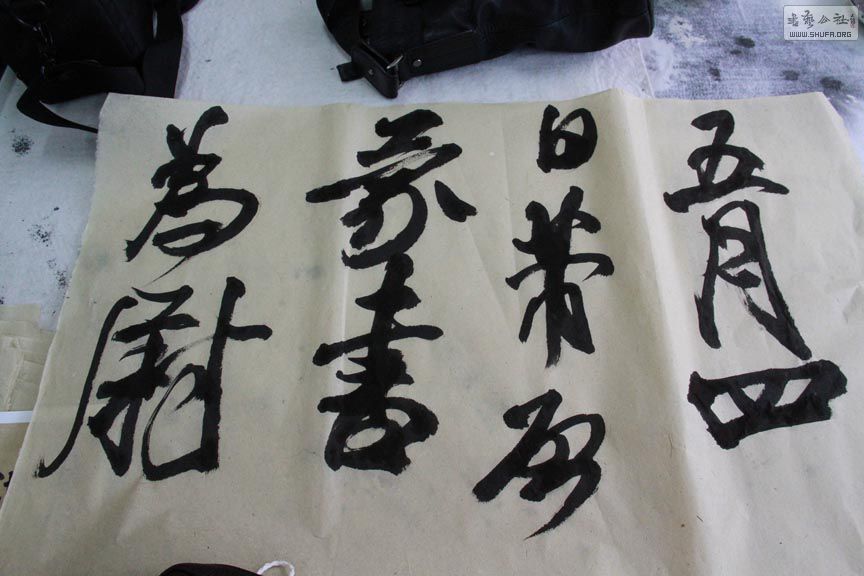 五月四
日芾啟
蒙書
為尉
书艺公社
WWW.SHUFA.ORG